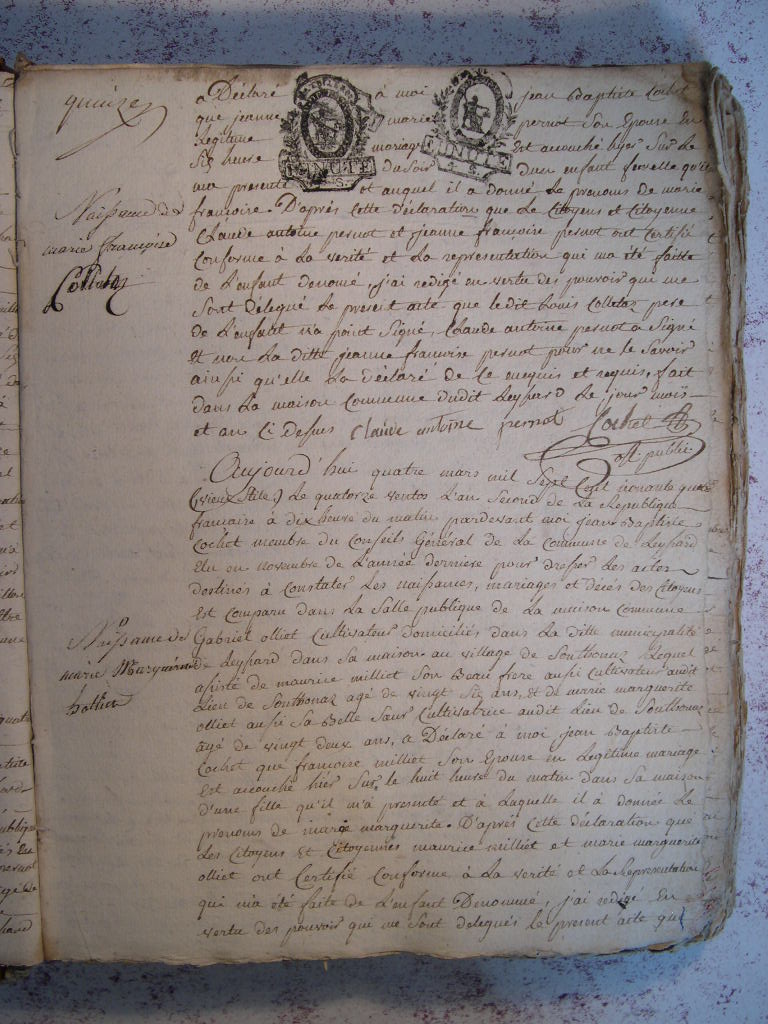 quinze
a Déclaré à moi jean Baptiste Cochet
que jeanne marie pernot Son Epouse En
Legitime mariage Est accouché hyer Sur Le
Six heure du Soir d'un enfant femelle qu'il
ma presenté et auquel il a donné Le prenoms de marie
françoise. D'après Cette Déclaration que Le Citoyens et Citoyenne
Claude antoine pernot et jeanne françoise pernot ont Certifié
Conforme à La verité et La representation qui ma été faitte
de L'enfant denomé, j'ai redigé en vertu des pouvoir qui me
Sont Délegué Le present acte que ledit Louis Colletaz pere
de L'enfant n'a point Signé, Claude antoine pernot a Signé
Et non La ditte jeanne françoise pernot pour ne le Savoir
ainsi qu'elle La déclaré de Ce enquis et requis, fait
dans La maison Commune dudit Leyssard Le jour mois
et an Ci dessus Claude antoine pernot Cochet
off. public
Naissance de
marie françoise
Colletaz
Aujourd'hui quatre mars mil Sept Cent nonante quatre
(vieux Stile) Le quatorze ventos L'an Second de La Republique
francaise à dix heure du matin pardevant moi jean Baptiste
Cochet membre du Conseils Général de La Commune de Leyssard
Elu en novembre de L'année derniere pour dresser Les actes
destinés à Constater Les naissances, mariages et décés des Citoyens
Est Comparu dans La Salle publique de La maison Commune
Gabriel olliet Cultivateur domiciliés dans La ditte municipalité
de Leyssard dans Sa maison au village de Southonaz Lequel
assisté de maurice milliet Son Beau frere aussi Cultivateur audit
Lieu de Southonaz agé de vingt Six ans, et de marie marguerite
olliet aussi Sa Belle Sœur Cultivatrice audit Lieu de Southonaz
agé de vingt deux ans, a Déclaré à moi jean Baptiste
Cochet que françoise milliet Son Epouse en Legitime mariage
Est accouché hier Sur le huit heure du matin dans Sa maison
d'une fille qu'il m'a presenté et à Laquelle il à donnée Le
prenoms de marie marguerite. D'après Cette déclaration que
Les Citoyens Et Citoyennes maurice milliet et marie marguerite
olliet ont Certifié Conforme à La verité et La Representation
qui m'a été faite de L'enfant Denommé, j'ai redigé En
vertu des pouvoir qui me Sont delegués le present acte que
Naissance de
marie